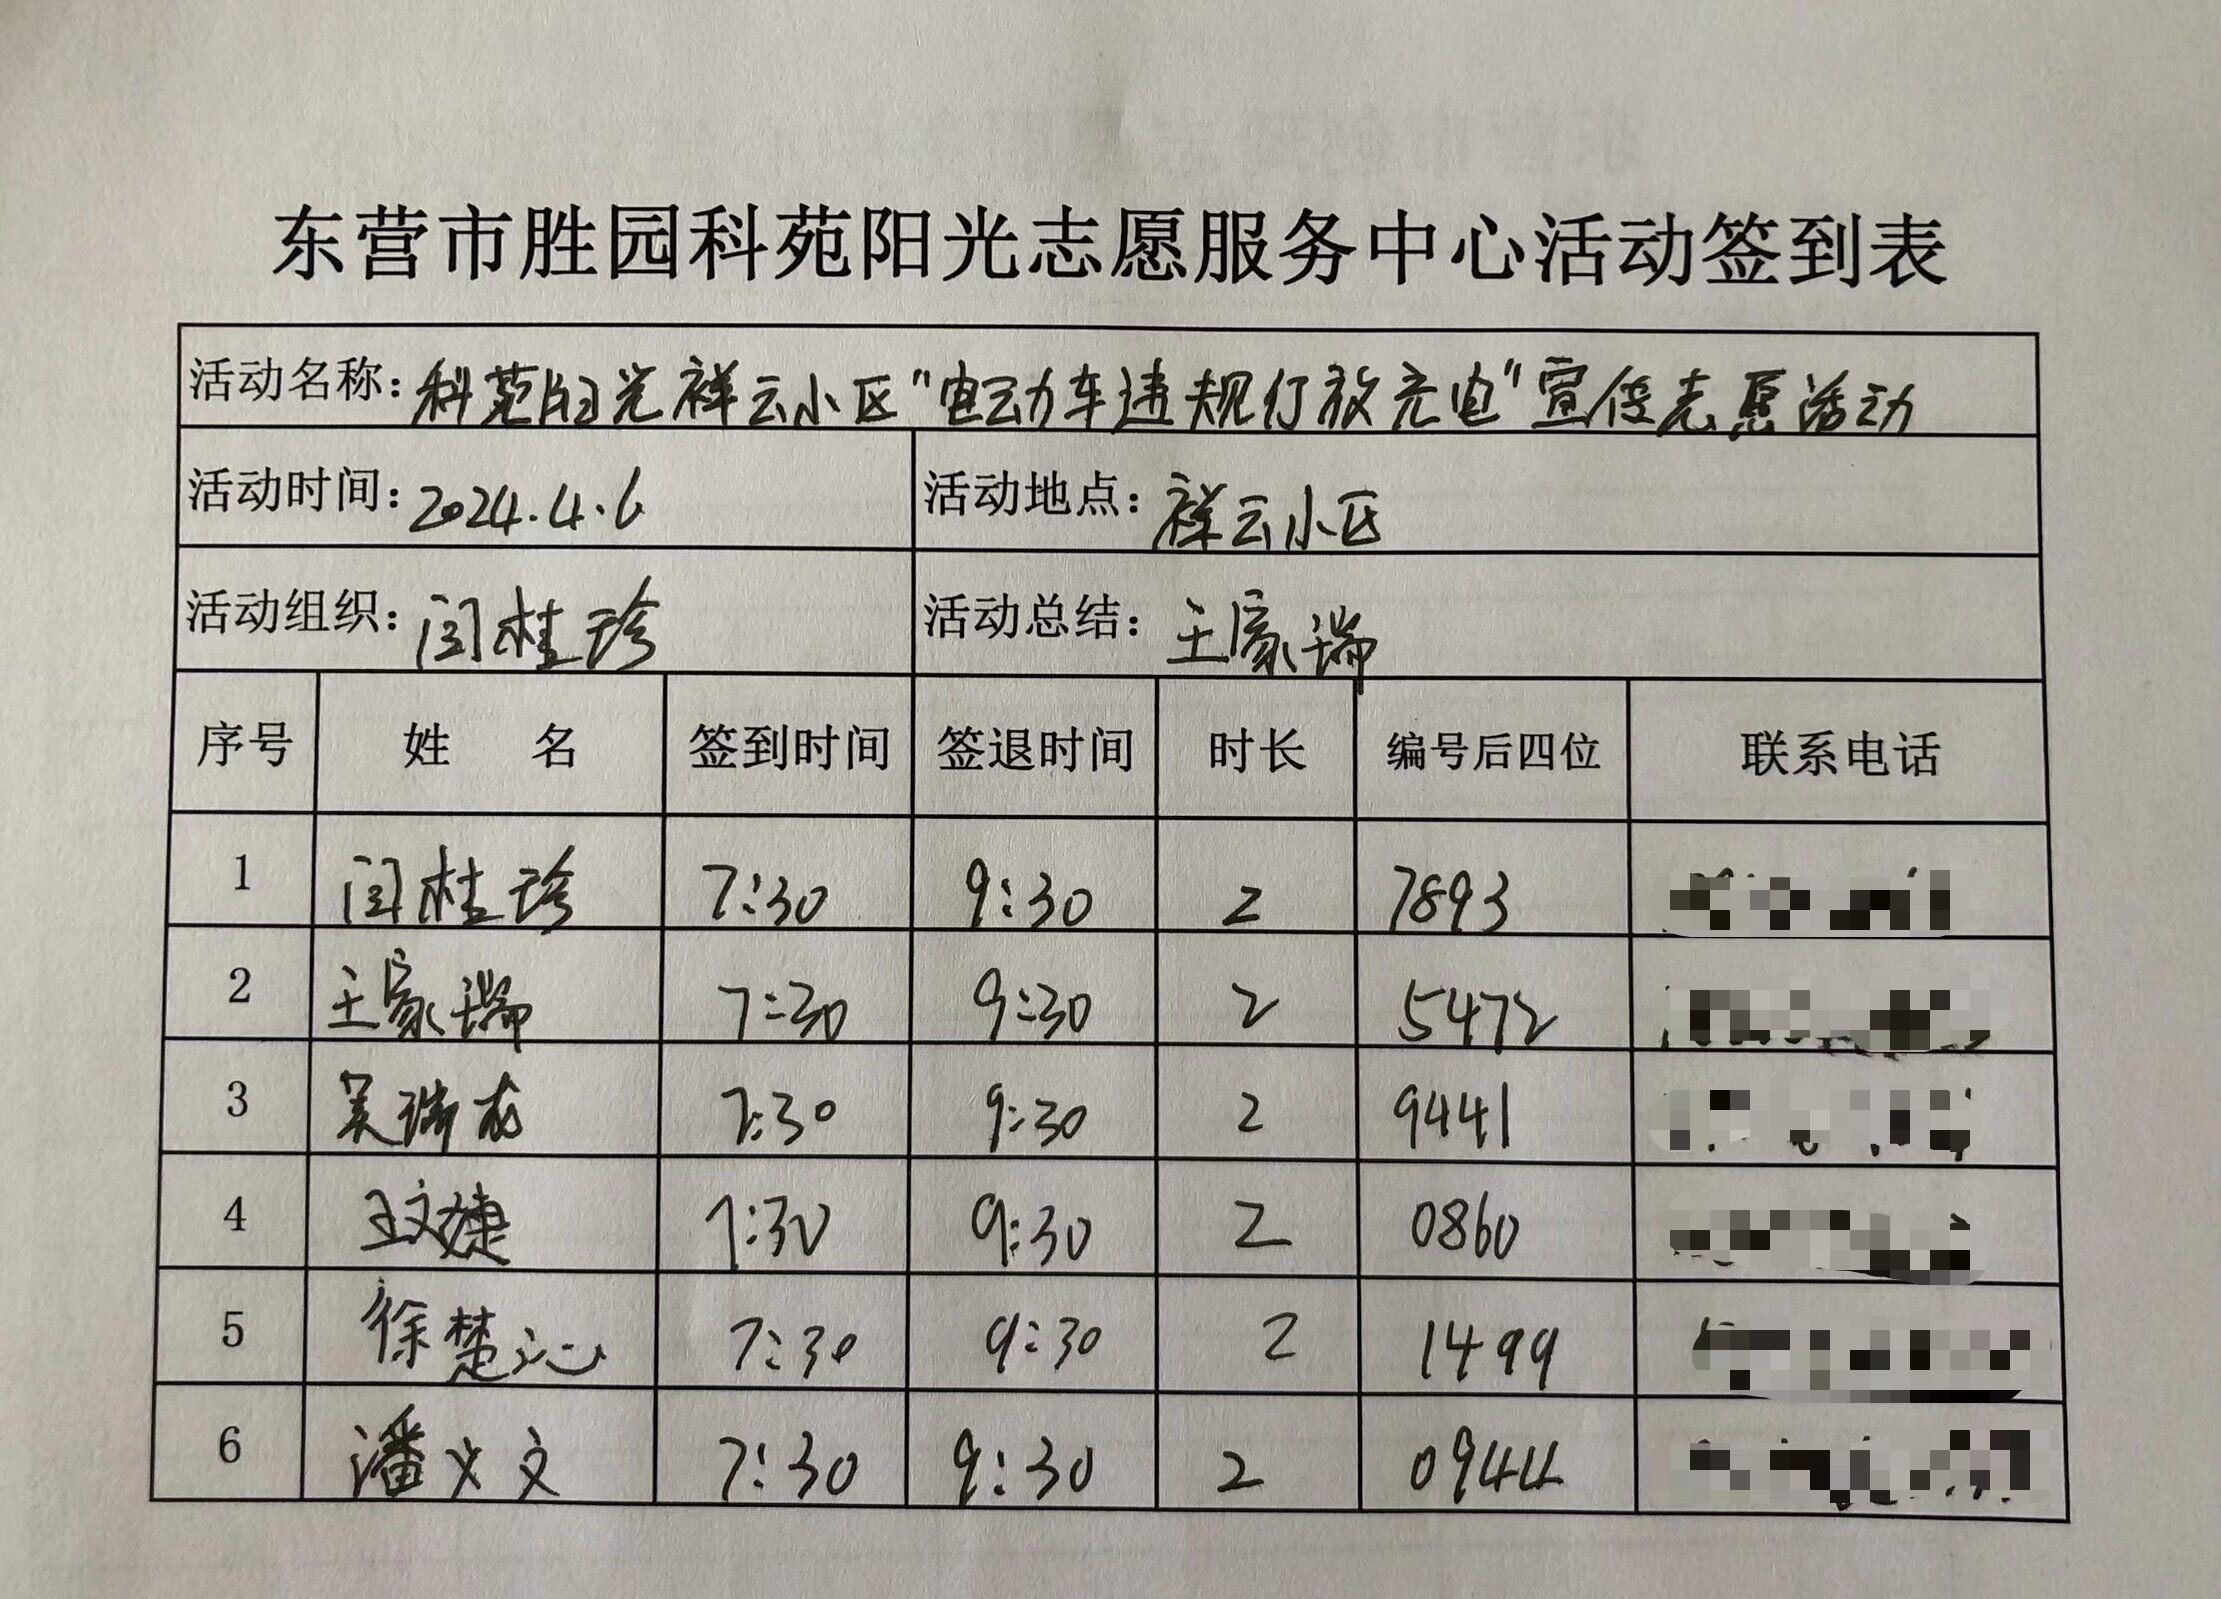 东营市胜园科苑阳光志愿服务中心活动签到表
活动名称：科苑阳光祥云小区"电动车违规停放充电"宣传志愿活动
活动时间：2024.4.6 活动地点：祥云小区
活动组织：闫桂珍 活动总结：王家瑞
序号 姓 名 签到时间 签退时间 时长 编号后四位 联系电话
1 闫桂珍 7:30 9:30 2 7893
2 王家瑞 7:30 9:30 2 5472
3 吴瑞龙 7:30 9:30 2 9441
4 王文婕 7:30 9:30 2 0860
5 徐楚沁 7:30 9:30 2 1499
6 潘义文 7:30 9:30 2 0944